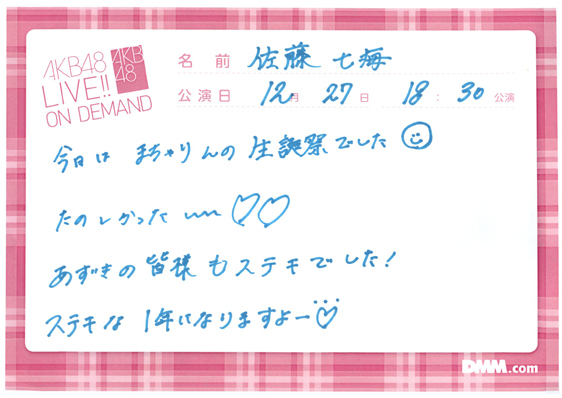 AKB48
LIVE!!
ON DEMAND
AKB
48
名前 佐藤 七海
公演日 12月 27日 18:30公演
今日は まちゃりんの 生誕祭でした
たのしかった
あずきの皆様もステキでした!
ステキな 1年になりますよー
DMM.com